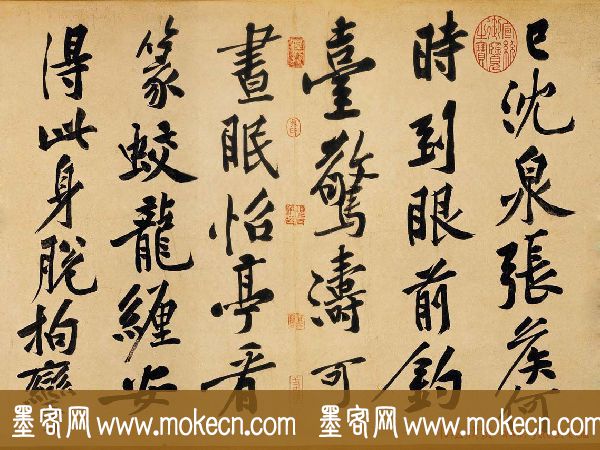 已沈泉張侯何
時到眼前釣
臺驚濤可
晝眠怡亭看
篆蛟龍纏安
得此身脫拘攣
墨客网 www.mokecn.com 墨客网 www.mokecn.com